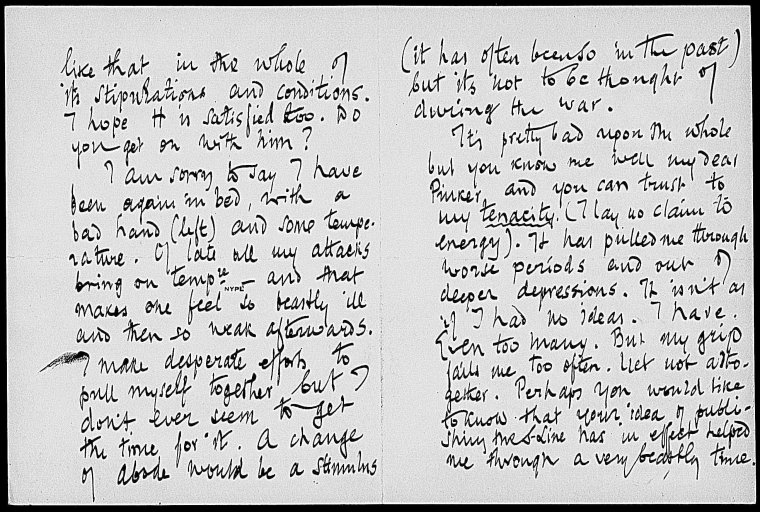 like that in the whole of
its stipulations and conditions.
I hope H is satisfied too. Do
you get on with him?
I am sorry to say I have
been again in bed, with a
bad hand (left) and some tempe-
rature. Of late all my attacks
bring on tempre and that
NYPL
makes one feel so beastly ill
and then so weak afterwards.
I make desperate efforts to
pull myself together but I
don't ever seem to get
the time for it. A change
of abode would be a stimulus
(it has often been so in the past)
but it's not to be thought of
during the war.
It's pretty bad upon the whole
but you know me well my dear
Pinker, and you can trust to
my tenacity. (I lay no claim to
energy). It has pulled me through
worse periods and out of
deeper depressions. It isn't as
if I had no ideas. I have.
Even too many. But my grip
fails me too often. Yet not alto-
gether. Perhaps you would like
to know that your idea of publi-
shing the S-Line has in effect helped
me through a very beastly time.